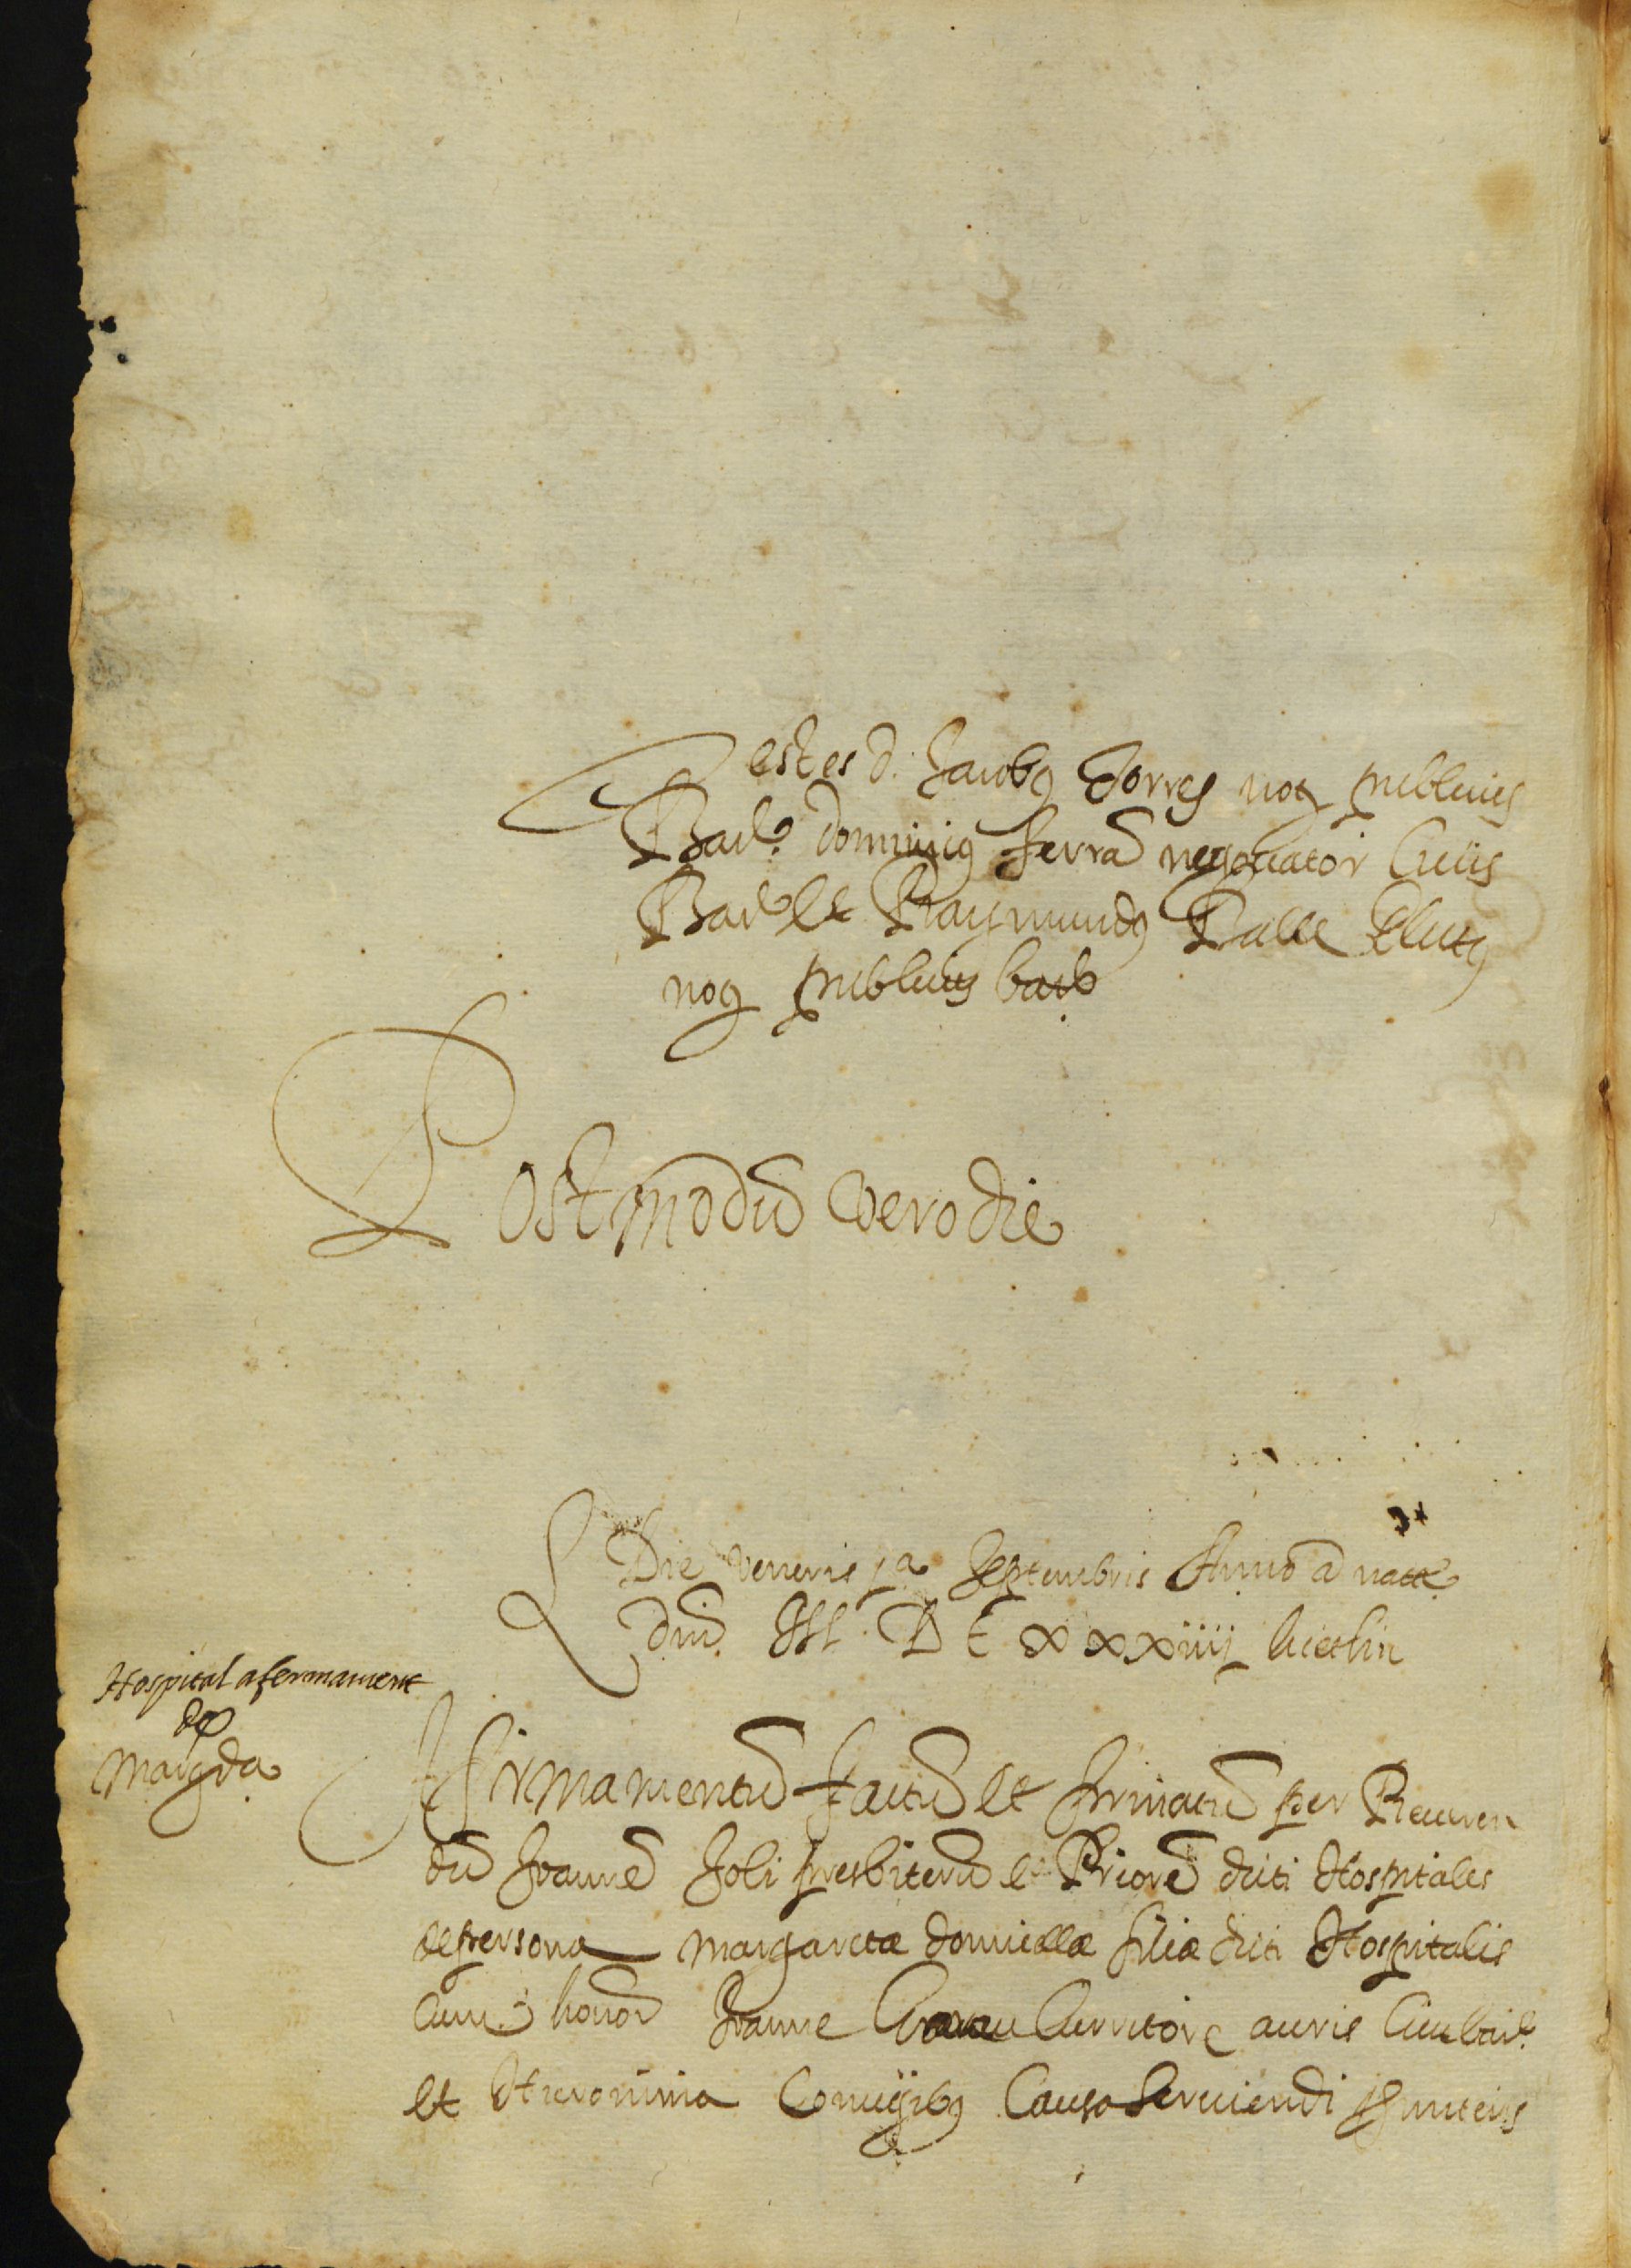 Testes d. Jacobus Torres nots publicus
Barñe. dominicus ferrã negotiator Civis
Barñe et Raymundus Valle
nots publicus barñe
Postmodũ vero die
Die veneris pa. Septembris Anno a natte
dñi. M. D C xxxiiij
Hospital afermament
de
Margda
Afirmamentũ factũ et firmatũ per Reueren
dũ Joannẽ Soli presbiterũ et Priorẽ dicti Hospitalis
de persona Margaretæ domicellæ filiæ dicti Hospitalis
Cum honor Joanne Curritore auris Ciue barñe
et Hieronima Coniugibus Causa Seruiendi